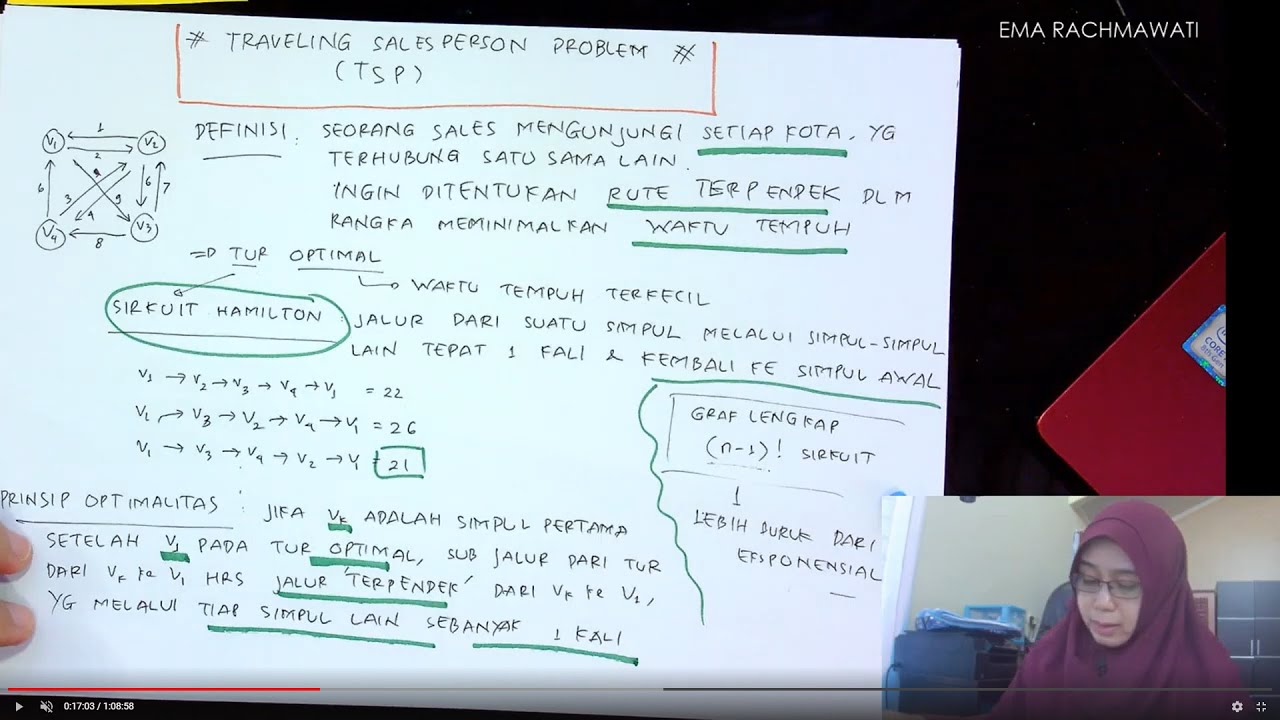 EMA RACHMAWATI
# TRAVELING SALESPERSON PROBLEM #
(TSP)
V1 1 V2
2
6 3 4 9 6 7
V4 8 V3
DEFINISI : SEORANG SALES MENGUNJUNGI SETIAP KOTA, YG
TERHUBUNG SATU SAMA LAIN.
INGIN DITENTUKAN RUTE TERPENDEK DLM
RANGKA MEMINIMALKAN WAKTU TEMPUH
=> TUR OPTIMAL
WAKTU TEMPUH TERKECIL
SIRKUIT HAMILTON : JALUR DARI SUATU SIMPUL MELALUI SIMPUL-SIMPUL
LAIN TEPAT 1 KALI & KEMBALI KE SIMPUL AWAL
V1 → V2 → V3 → V4 → V1 = 22
V1 → V3 → V2 → V4 → V1 = 26
V1 → V3 → V4 → V2 → V1 = 21
GRAF LENGKAP
(n-1)! SIRKUIT
LEBIH BURUK DARI
EKSPONENSIAL
PRINSIP OPTIMALITAS : JIKA VK ADALAH SIMPUL PERTAMA
SETELAH V1 PADA TUR OPTIMAL, SUB JALUR DARI TUR
DARI VK KE V1 HRS JALUR 'TERPENDEK' DARI VK KE V1,
YG MELALUI TIAP SIMPUL LAIN SEBANYAK 1 KALI
CORE
8th Gen
0:17:03 / 1:08:58